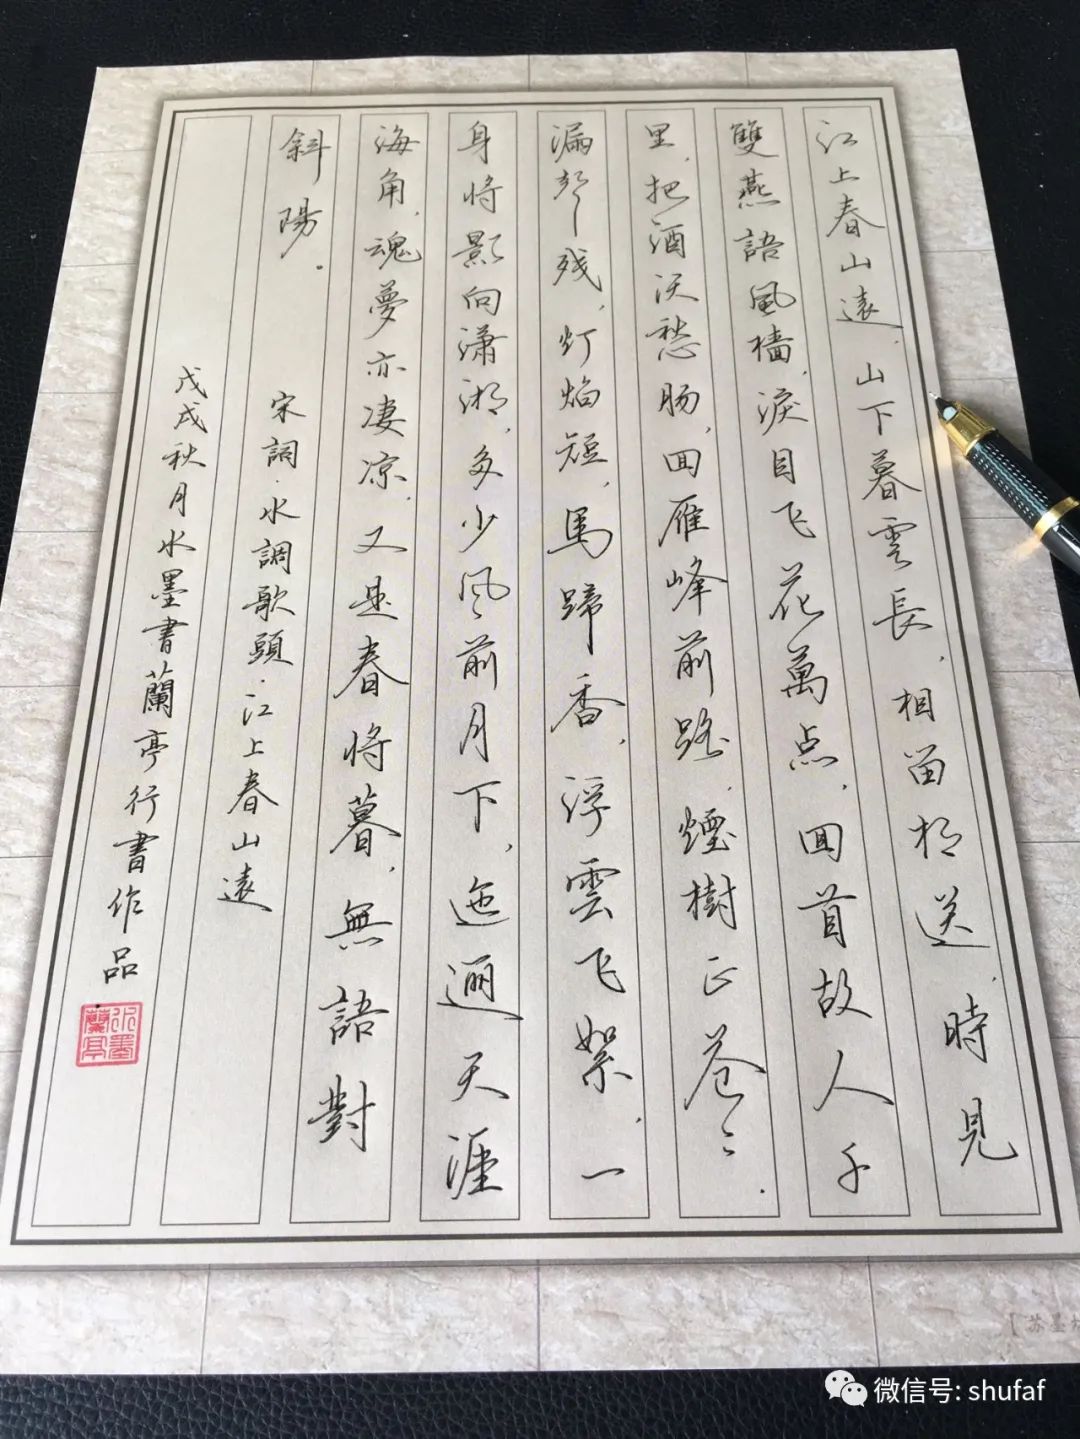 江上春山遠，山下暮雲長，相留相送，時見
雙燕語風檣，淚目飞花萬点，回首故人千
里，把酒沃愁肠，回雁峰前路，煙樹正苍々。
漏聲残，灯焰短，馬蹄香，浮雲飞絮，一
身将影向瀟湘，多少风前月下，迤逦天涯
海角，魂夢亦凄凉，又是春将暮，無語對
斜陽。
宋詞·水調歌頭·江上春山遠
戊戌秋月水墨書蘭亭行書作品
水墨蘭亭
微信号: shufaf